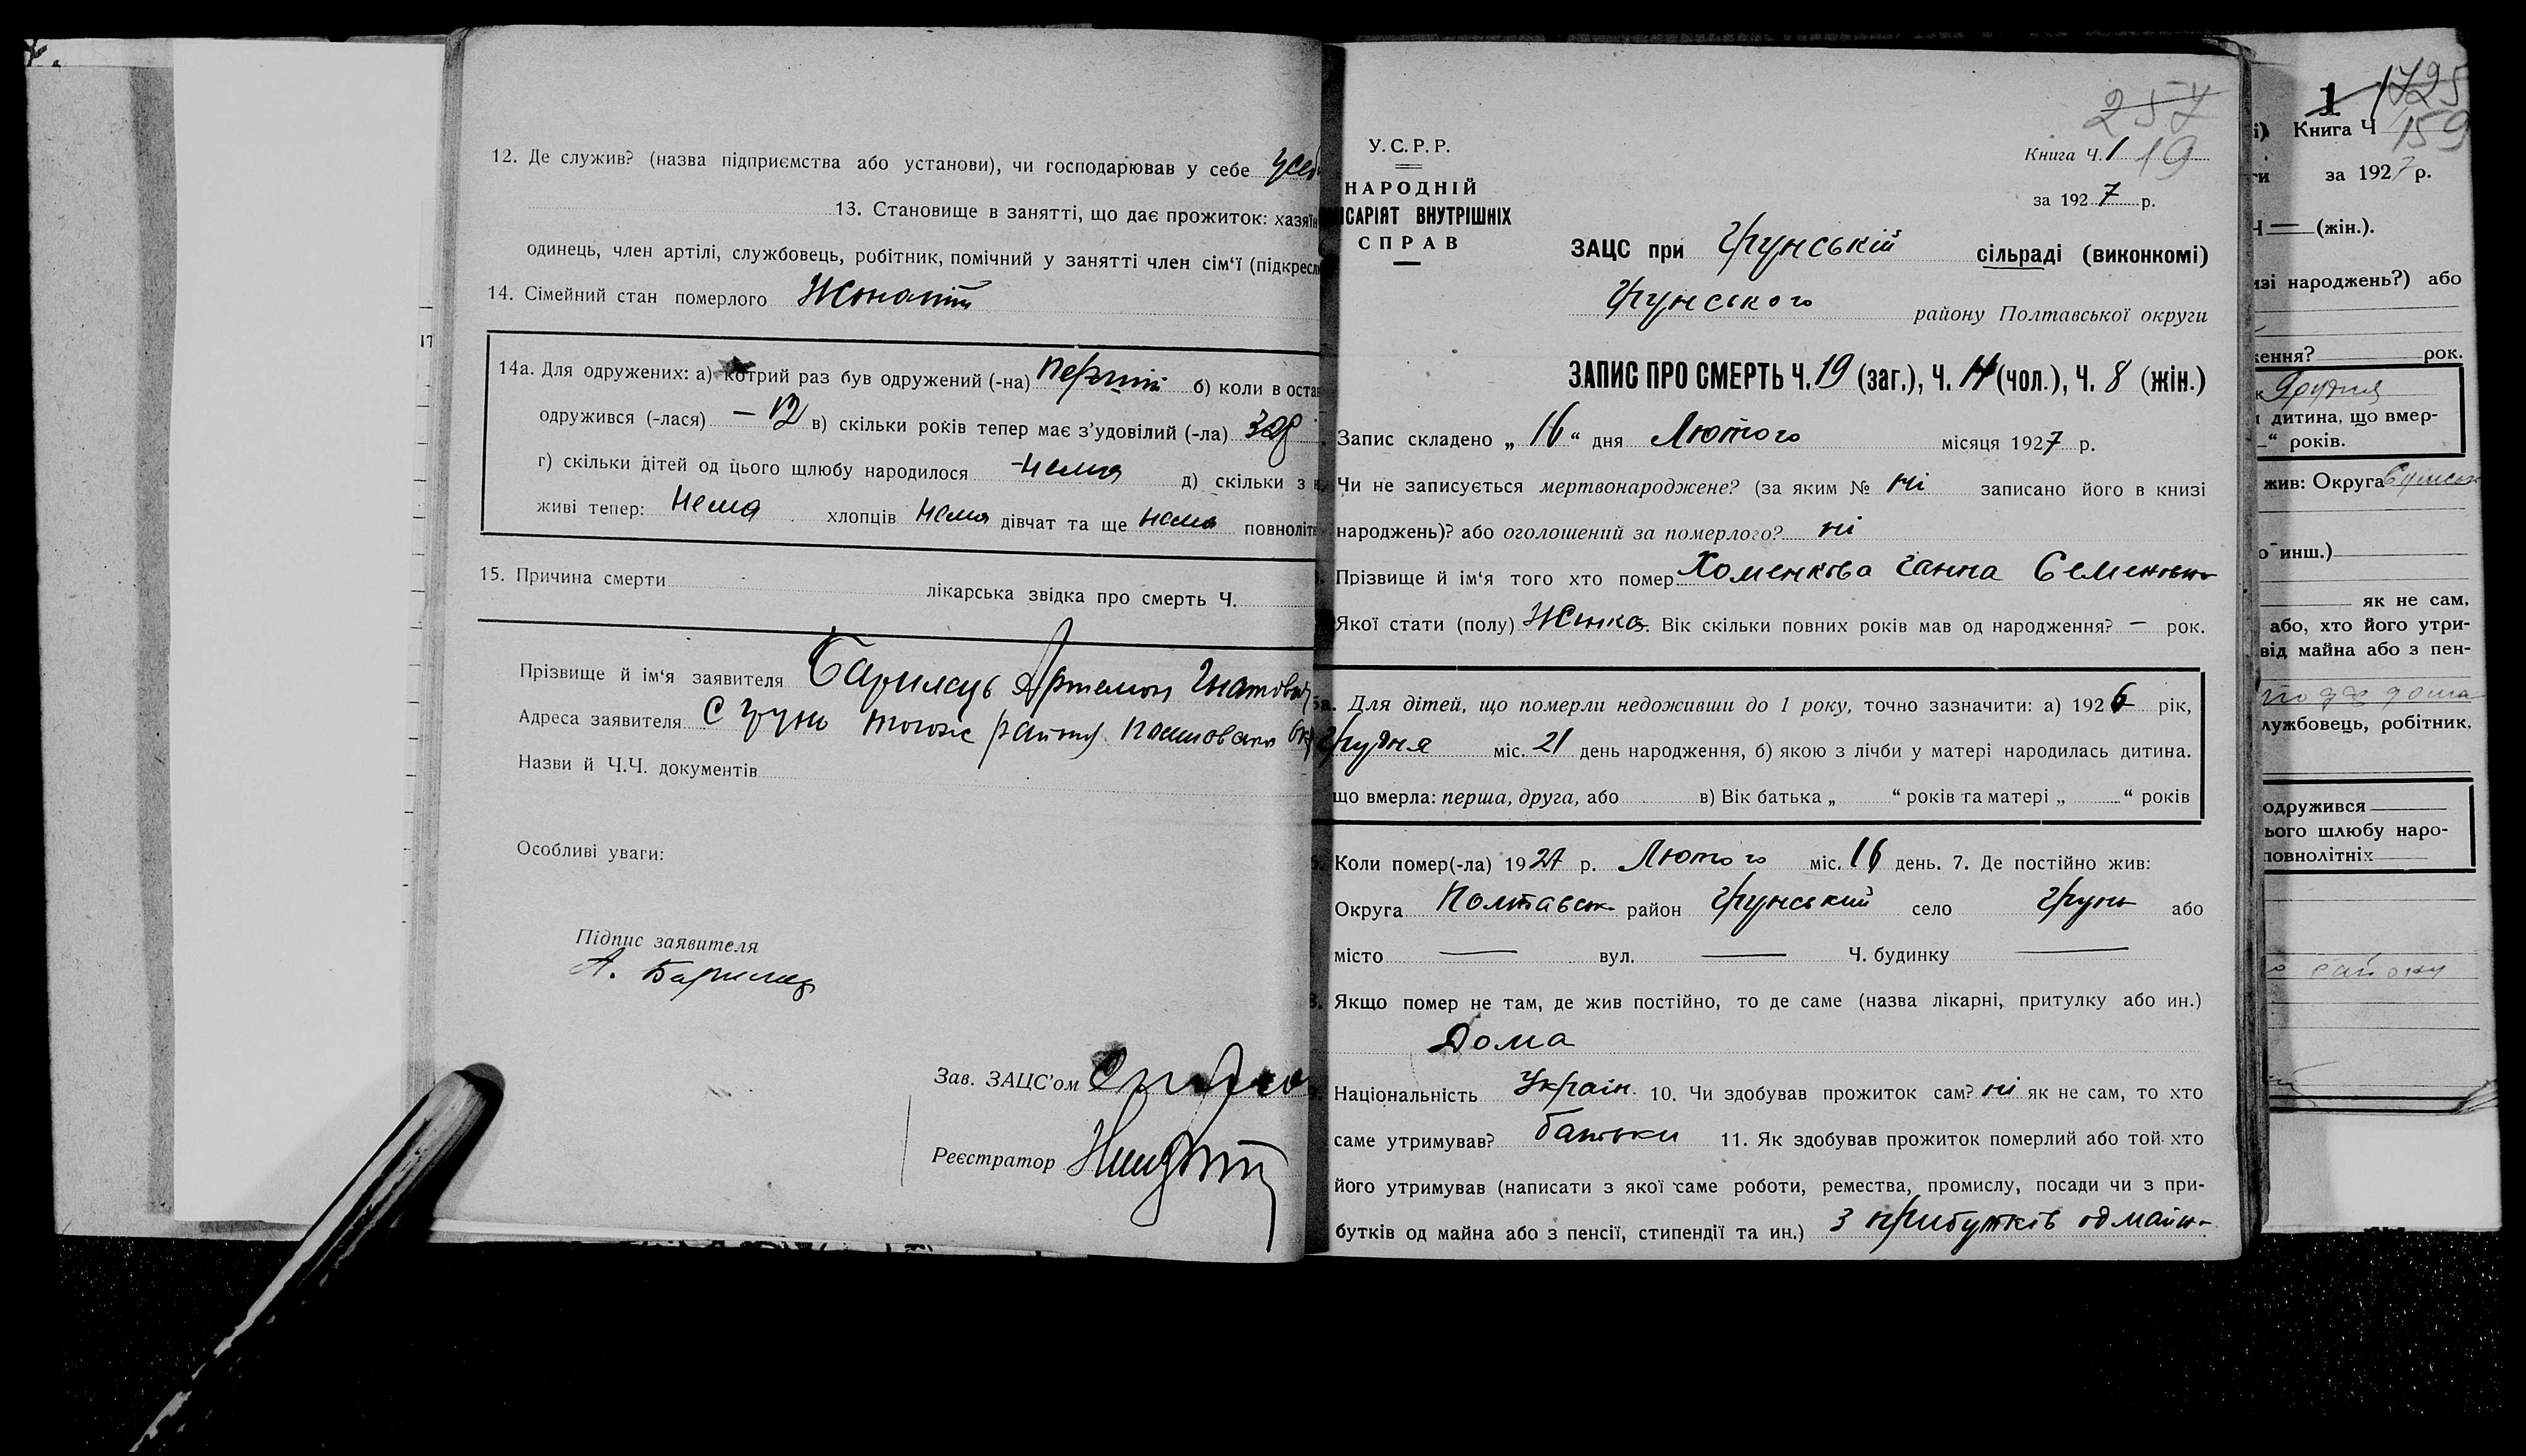 12. Де служив? (назва підприємства або установи), чи господарював у себе усеб
13. Становище в занятті, що дає прожиток: хазяїн
одинець, член артілі, службовець, робітник, помічний у занятті член сім‘ї (підкресл
14. Сімейний стан померлого Жонатий
14а. Для одружених: а) котрий раз був одружений (-на) перший б) коли в оста
одружився (-лася) — 12 в) скільки років тепер має з’удовілий (-ла)
г) скільки дітей од цього шлюбу народилося нема д) скільки з
живі тепер: нема хлопців нема дівчат та ще нема повноліт
15. Причина смерти лікарська звідка про смерть Ч.
Прізвище й ім‘я заявителя Барилець Артемон Гнатович
Адреса заявителя С Грунь того ж району
Назви й Ч.Ч. документів
Особливі уваги:
Підпис заявителя
А. Барилець
Зав. ЗАЦС’ом
Реєстратор
257
У.С.Р.Р.
Книга Ч. 1 19
НАРОДНІЙ
за 1927 р.
ІСАРІЯТ ВНУТРІШНІХ
СПРАВ
ЗАЦС при Грунській сільраді (виконкомі)
Грунського району Полтавської округи
ЗАПИС ПРО СМЕРТЬ Ч. 19 (заг.), Ч. 11 (чол.), Ч. 8 (жін.)
Запис складено „ 16 “ дня Лютого місяця 1927 р.
Чи не записується мертвонароджене? (за яким № ні записано його в книзі
народжень)? або оголошений за померлого? ні
Прізвище й ім‘я того хто помер Хоменкова Ганна Семеновна
Якої стати (полу) Жінка. Вік скільки повних років мав од народження? — рок.
5а. Для дітей, що померли недоживши до 1 року, точно зазначити: а) 1926 рік,
Грудня міс. 21 день народження, б) якою з лічби у матері народилась дитина.
що вмерла: перша, друга, або в) Вік батька „ “ років та матері „ “ років
6. Коли помер(-ла) 1927 р. Лютого міс. 16 день. 7. Де постійно жив:
Округа Полтавськ район Грунський село Грунь або
місто — вул. — Ч. будинку —
8. Якщо помер не там, де жив постійно, то де саме (назва лікарні, притулку або ин.)
Дома
Національність Україн. 10. Чи здобував прожиток сам? ні як не сам, то хто
саме утримував? батьки 11. Як здобував прожиток померлий або той хто
його утримував (написати з якої саме роботи, ремества, промислу, посади чи з при-
бутків од майна або з пенсії, стипендії та ин.) з прибутків од майн
1 1725
і) Книга Ч 159
ти за 1927 р.
Ч — (жін.).
изі народжень?) або
ження? рок.
Грудня
дитина, що вмер-
—“ років.
жив: Округа Сумськ
о инш.)
як не сам,
або, хто його утри-
від майна або з пен-
лужбовець, робітник,
одружився
ього шлюбу наро-
повнолітніх
району